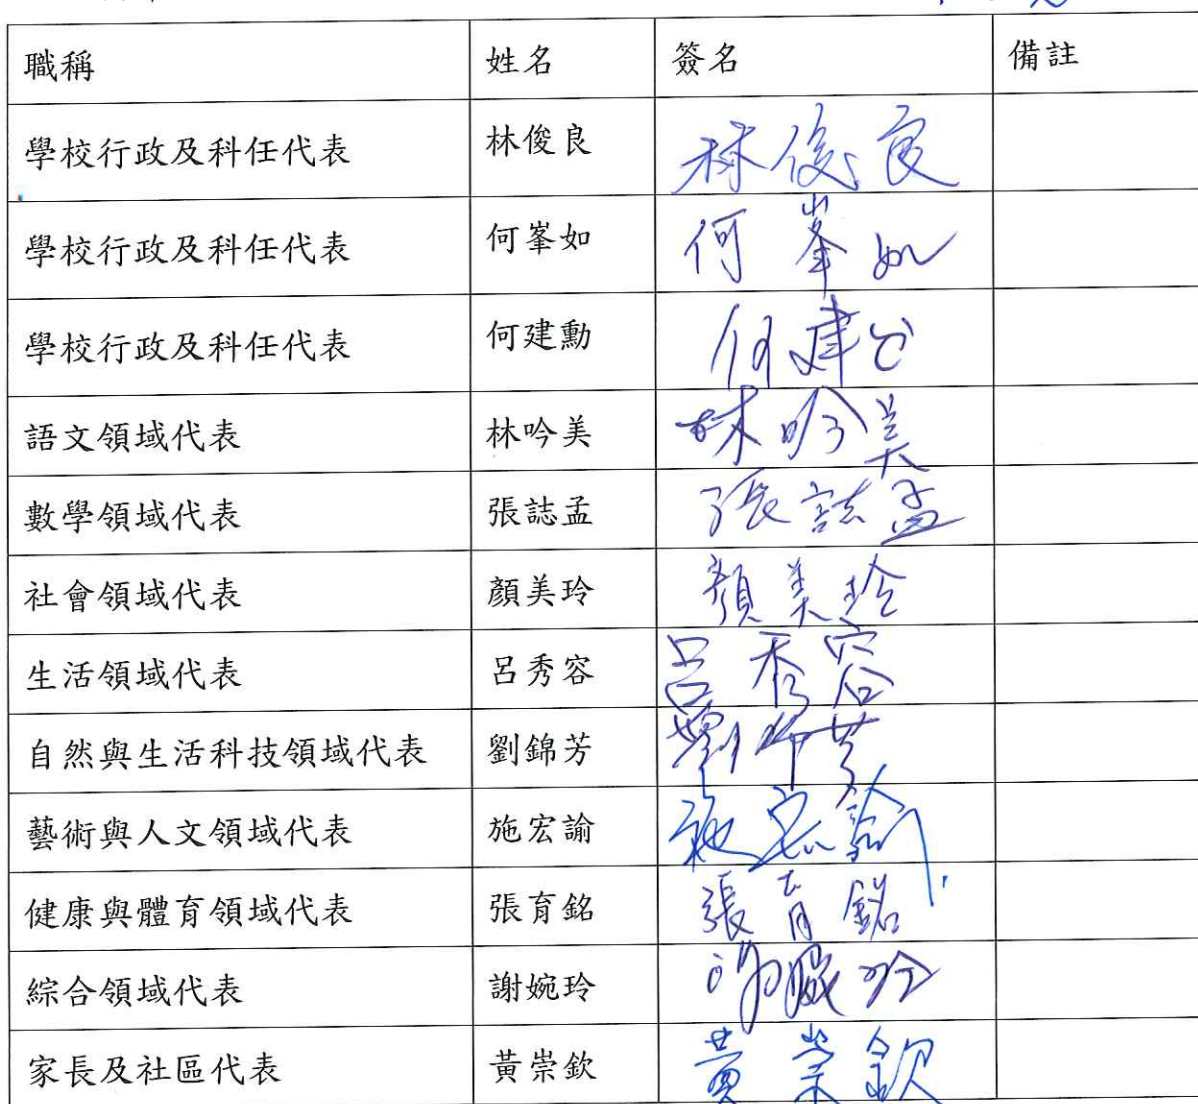 職稱 姓名 簽名 備註
學校行政及科任代表 林俊良 林俊良
學校行政及科任代表 何峯如 何峯如
學校行政及科任代表 何建勳 何建
語文領域代表 林吟美 林吟美
數學領域代表 張誌孟 張誌孟
社會領域代表 顏美玲 顏美玲
生活領域代表 呂秀容 呂秀容
自然與生活科技領域代表 劉錦芳 劉錦芳
藝術與人文領域代表 施宏諭 施宏諭
健康與體育領域代表 張育銘 張育銘
綜合領域代表 謝婉玲
家長及社區代表 黃崇欽 黃崇欽